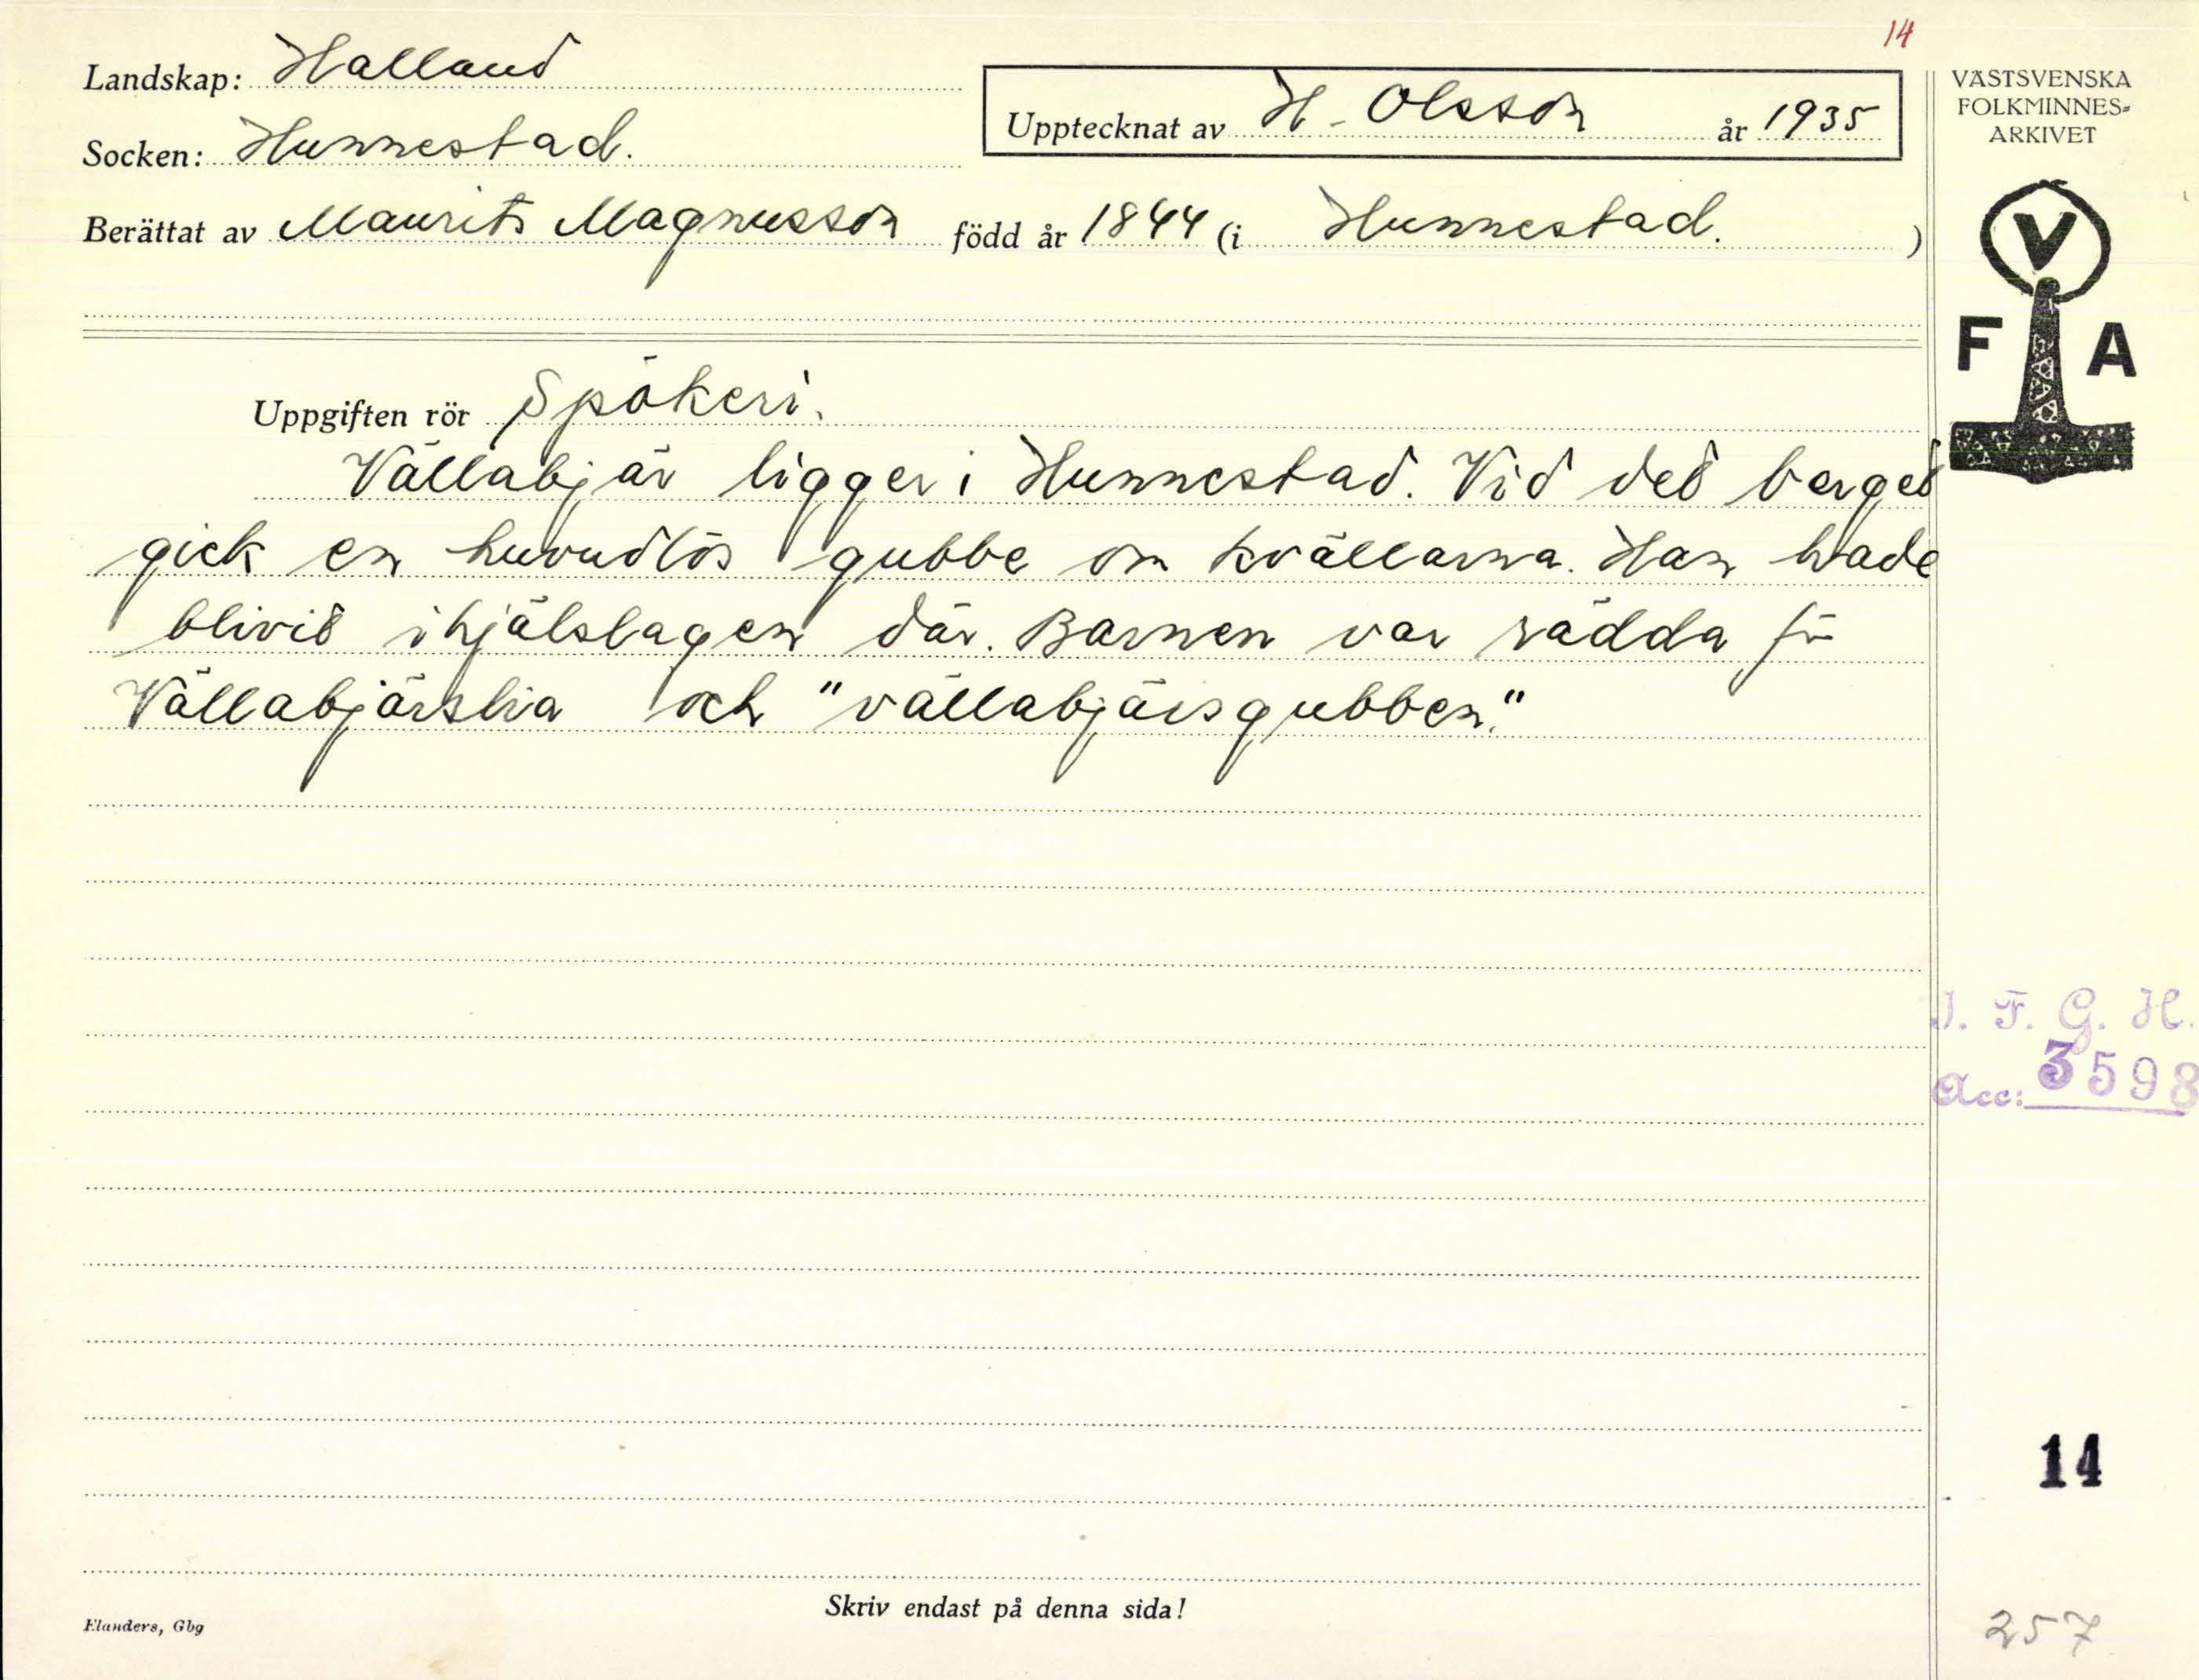 14
Landskap: Halland
Upptecknat av H. Olsson år 1935
Socken: Hunnestad.
Berättat av Maurits Magnusson född år 1844 (i Hunnestad.)
VÄSTSVENSKA
FOLKMINNES=
ARKIVET
V
F A
Uppgiften rör Spökeri.
Vällabjär ligger i Hunnestad. Vid det berget
gick en huvudlös gubbe om kvällarna. Han hade
blivit ihjälslagen där. Barnen var rädda för
Vällabjärslia och "vällabjärsgubben."
I. F. G. H.
Acc: 3598
14
Skriv endast på denna sida!
Elanders, Gbg
257